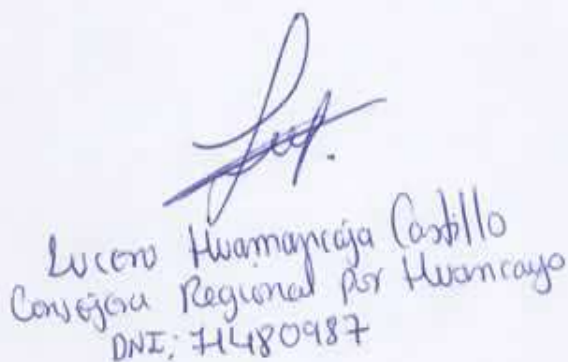 Lucero Huamancaja Castillo
Consejera Regional por Huancayo
DNI: 71480987